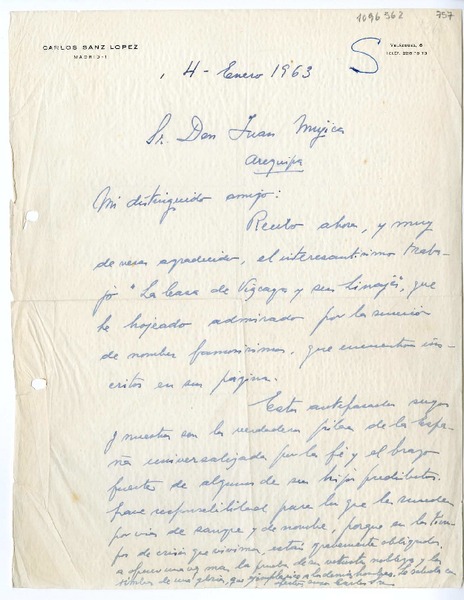 1096562 757
CARLOS SANZ LOPEZ
MADRID-1
VELAZQUEZ, 6
S
4 - Enero 1963
Sr. Don Juan Mujica
Arequipa
Mi distinguido amigo:
Recibo ahora, y muy
de veras agradecido, el interesantísimo traba-
jo "La Casa de Vizcaya y sus linajes", que
he hojeado admirado por la
de nombres famosísimos, que encuentran ins-
critos en sus páginas.
Estos antepasados suyos
y nuestros son los verdaderos pilares de la Espa-
ña universalizada por la fé y el brazo
fuerte de algunos de sus hijos predilectos.
Grave responsabilidad para los que le suceden
por vías de sangre y de nombre, porque en los tiem-
pos de crisis que vivimos, están gravemente obligados
a ofrecer una vez mas la prueba de su vetusta nobleza y los
timbres de una gloria, que a los demás hombres. Le saluda con
afecto Carlos Sanz